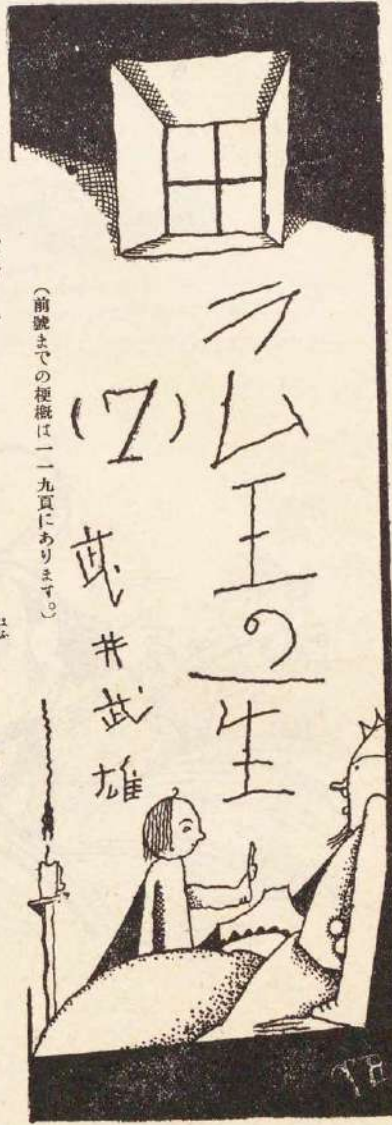 ラム王の一生
(7)
武井武雄
(前號までの梗概は一一九頁にあります。)